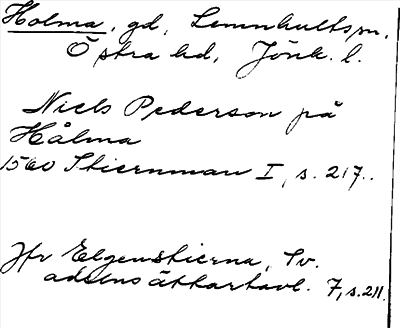 Holma, gd, Lemnhults sn,
Östra hd, Jönk. l.
Niels Pederson på
Hålma
1560 Stiernman I, s. 217.
Jfr Elgenstierna, Sv.
adelns ättartavl. 7, s. 211.